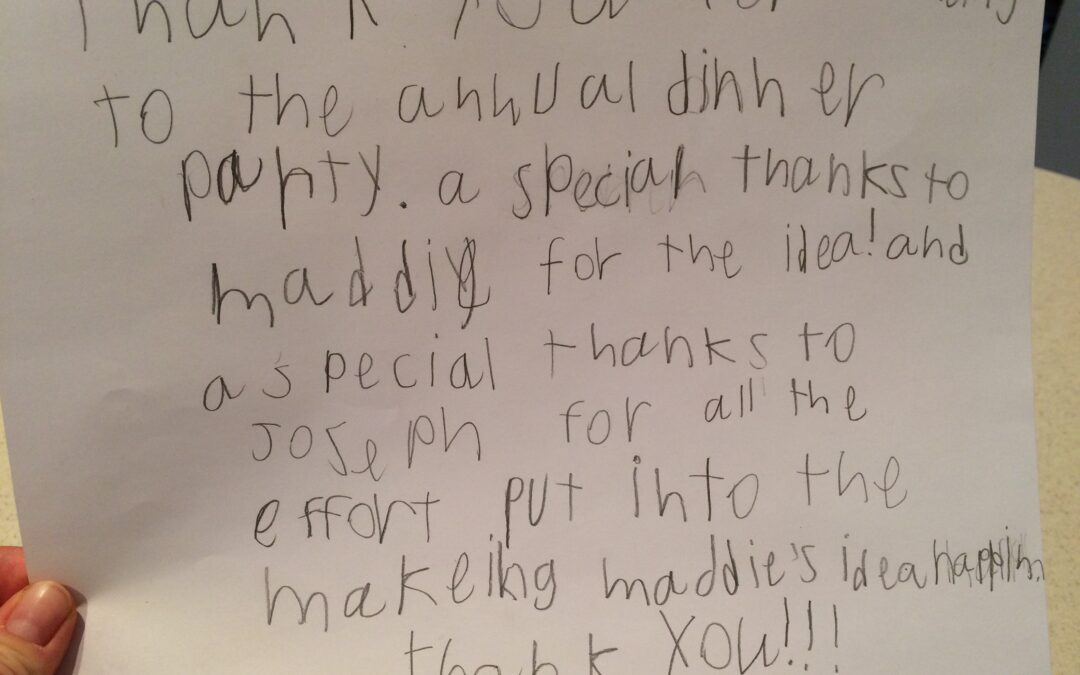 Thank You for
to the annual dinner
party. a special thanks to
maddie for the idea! and
a special thanks to
Joseph for all the
effort put into the
makeing maddie's idea happin.
thank YOU!!!